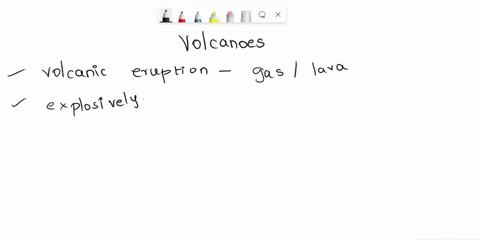 Volcanoes
volcanic eruption - gas / lava
explosively.